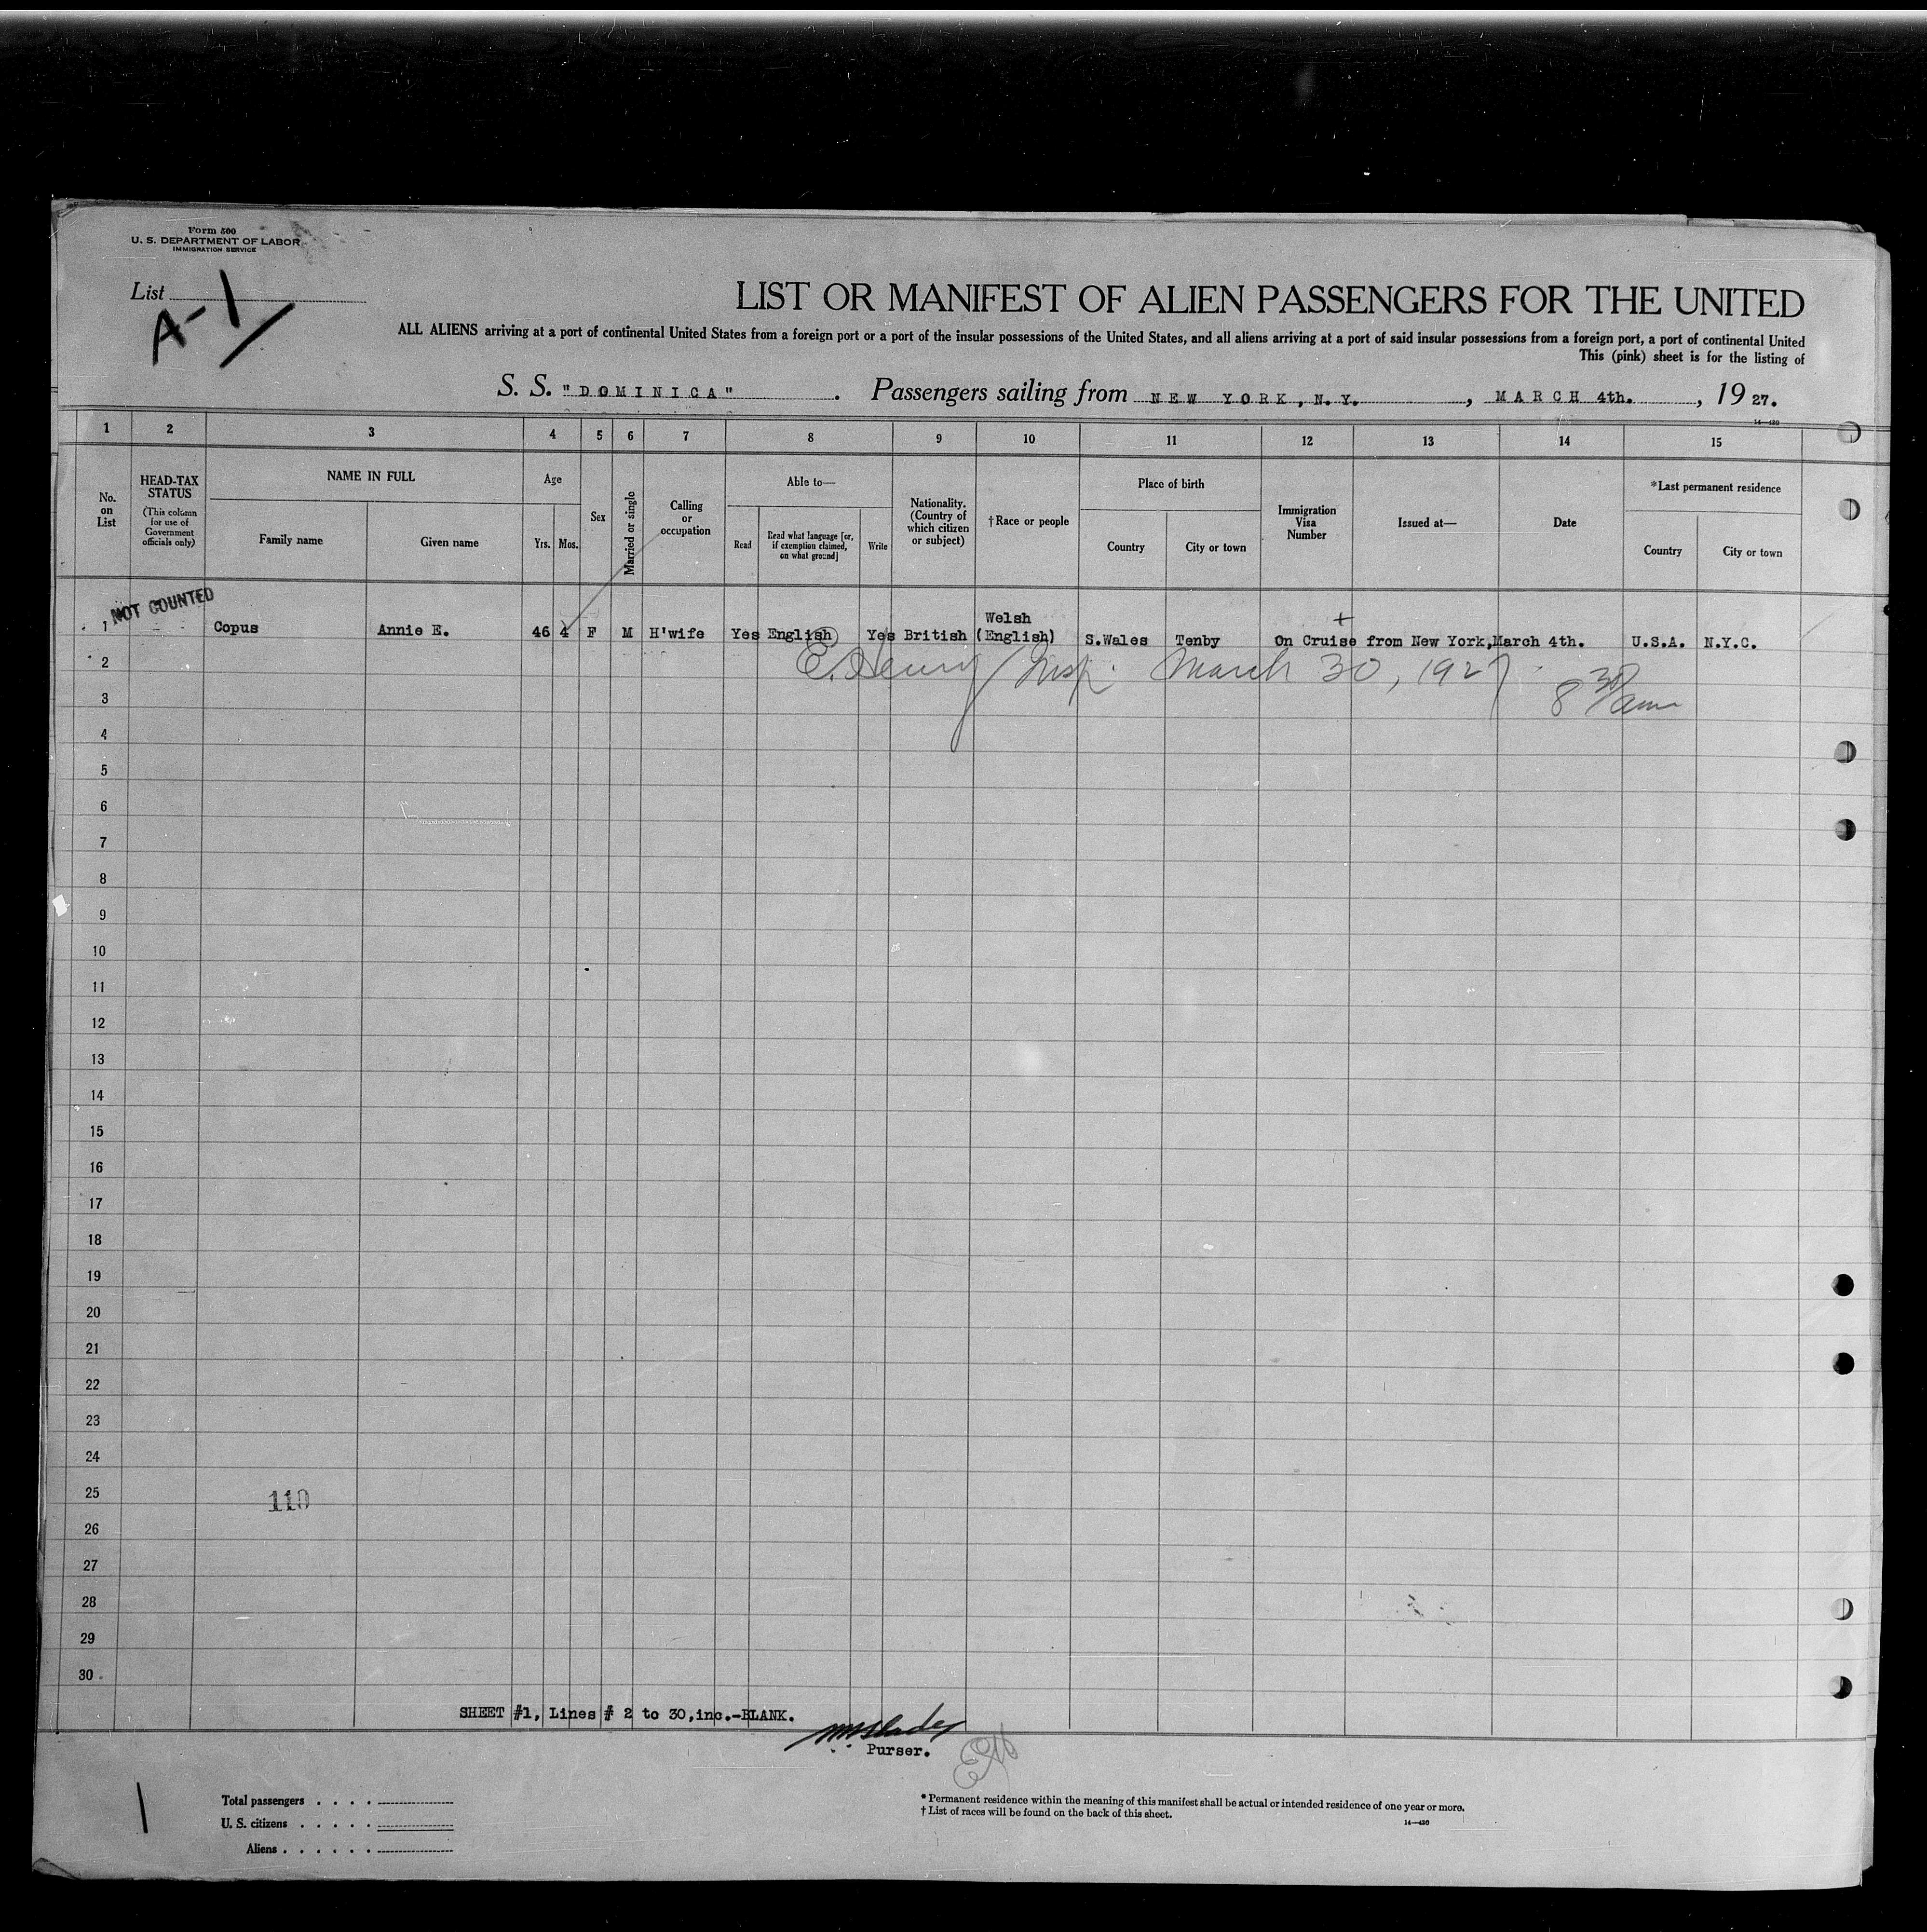 Form 500
U. S. DEPARTMENT OF LABOR
IMMIGRATION SERVICE
List
A-1
LIST OR MANIFEST OF ALIEN PASSENGERS FOR THE UNITED
ALL ALIENS arriving at a port of continental United States from a foreign port or a port of the insular possessions of the United States, and all aliens arriving at a port of said insular possessions from a foreign port, a port of continental United
This (pink) sheet is for the listing of
S. S. "DOMINICA". Passengers sailing from NEW YORK, N.Y., MARCH 4th., 1927.
14—430
1 2 3 4 5 6 7 8 9 10 11 12 13 14 15
No. on List
HEAD-TAX STATUS
(This column for use of Government officials only)
NAME IN FULL
Family name
Given name
Age
Yrs.
Mos.
Sex
Married or single
Calling or occupation
Able to—
Read
Read what language [or, if exemption claimed, on what ground]
Write
Nationality. (Country of which citizen or subject)
†Race or people
Place of birth
Country
City or town
Immigration Visa Number
Issued at—
Date
*Last permanent residence
Country
City or town
NOT COUNTED
Welsh
1 Copus Annie E. 46 4 F M H'wife Yes English Yes British (English) S.Wales Tenby On Cruise from New York, March 4th. U.S.A. N.Y.C.
2 E. Henry Insp. March 30, 1927
3 8 30/am
4
5
6
7
8
9
10
11
12
13
14
15
16
17
18
19
20
21
22
23
24
25 110
26
27
28
29
30
SHEET #1, Lines # 2 to 30, inc.-BLANK.
Purser.
Total passengers . . . .
U. S. citizens . . . . .
Aliens . . . . . .
* Permanent residence within the meaning of this manifest shall be actual or intended residence of one year or more.
† List of races will be found on the back of this sheet.
14—430